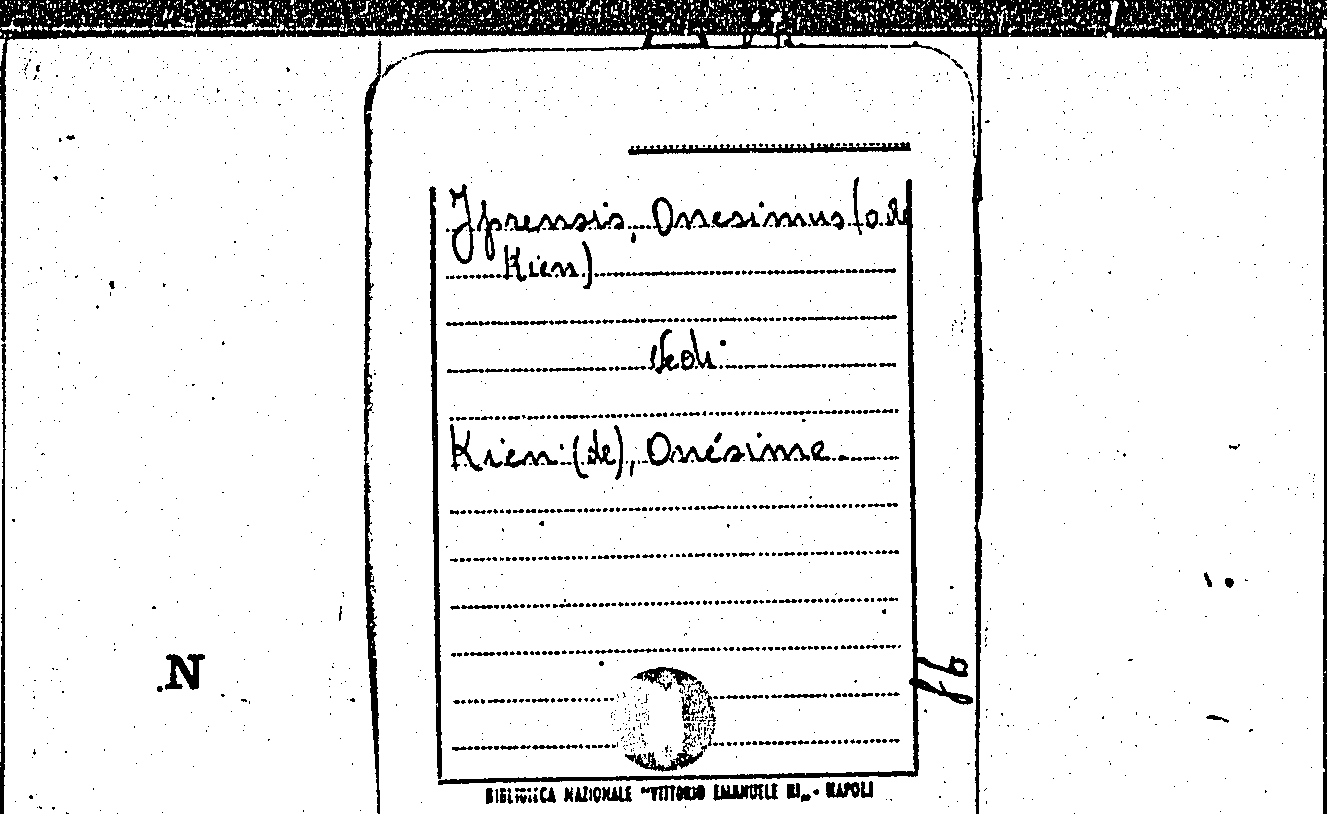 Jprensis, Onesimus (o de
Kien)
Vedi
Kien (de), Onésime.
N
BIBLIOTECA NAZIONALE "VITTORIO EMANUELE III„ - NAPOLI